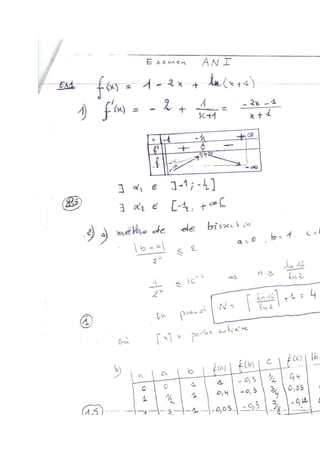 Examen AN I
Ex1 f(x) = 1 - 2x + ln(x+1)
1) f'(x) = - 2 + 1/(x+1) = (-2x-1)/(x+1)
x -1 -1/2 +∞
f' + 0 -
f -∞ -∞
∃ α₁ ∈ ]-1; -½]
∃ α₂ ∈ [-½, +∞[
2) a) méthode de bissection
|b-a|/2ⁿ ≤ ε a=0, b=1
1/2ⁿ ≤ 10⁻¹ => n ≥ ln10/ln2
On prend N = [ln10/ln2] + 1 = 4
où [x] = partie entière
1
b) n a b f(a) f(b) c f(c)
0 0 1 1 -0,3 ½ 0,4
1 ½ 1 0,4 -0,3 ¾ 0,05
1.5